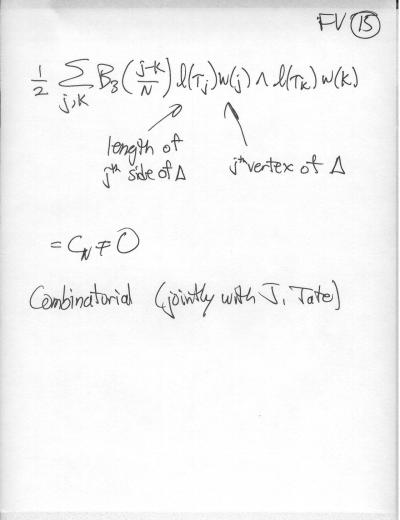 FV 15
1/2 Σ_{j,k} B₃((j-k)/N) l(T_j)w(j) ∧ l(T_k)w(k)
length of jᵗʰ vertex of Δ
jᵗʰ side of Δ
= C_N ≠ 0
Combinatorial (jointly with J. Tate)